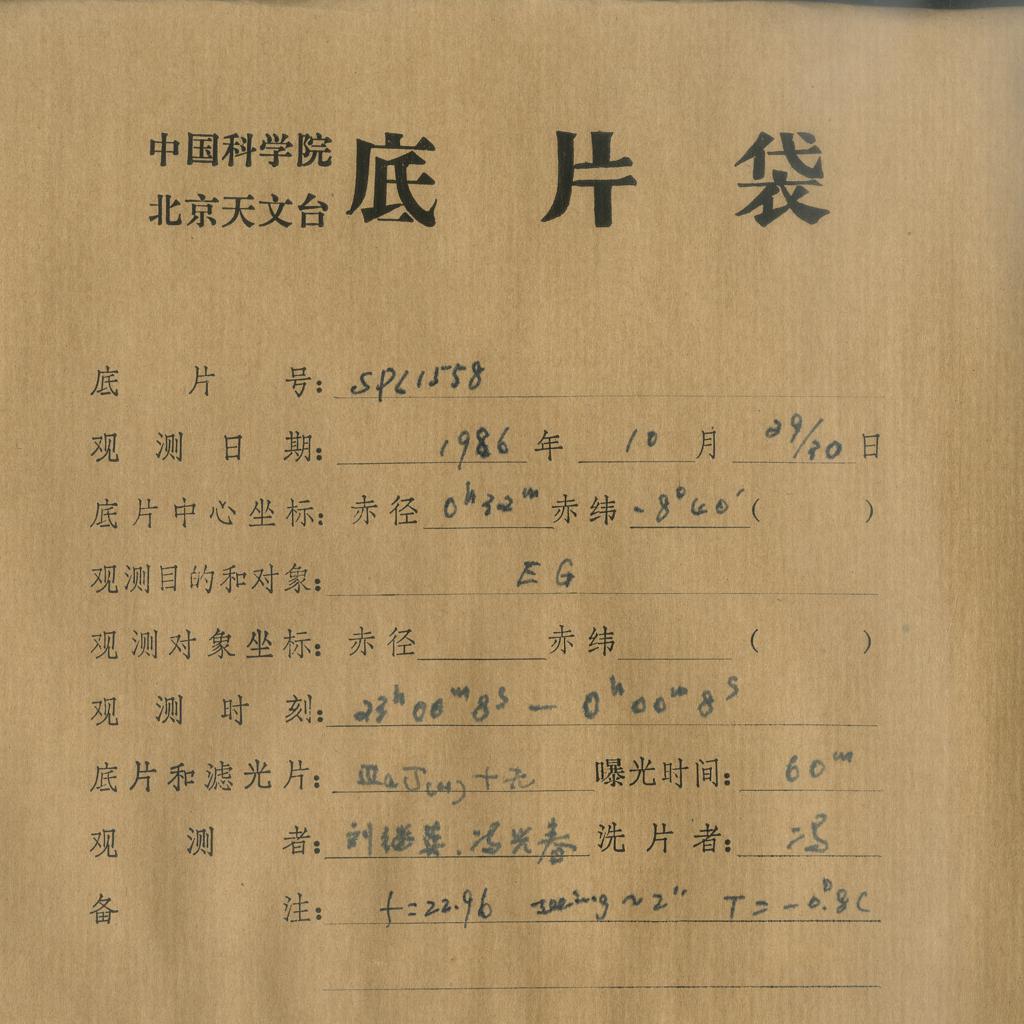 中国科学院
北京天文台
底片袋
底片号：SPL1558
观测日期：1986年10月29/30日
底片中心坐标：赤径 0h32m 赤纬 -8°40′（ ）
观测目的和对象：EG
观测对象坐标：赤径 赤纬 （ ）
观测时刻：23h00m8s — 0h00m8s
底片和滤光片：ⅢaJ(H)+无 曝光时间：60m
观测者：刘继英．冯光春 洗片者：冯
备注：f=22.96 seeing ~2″ T=-0.°8C